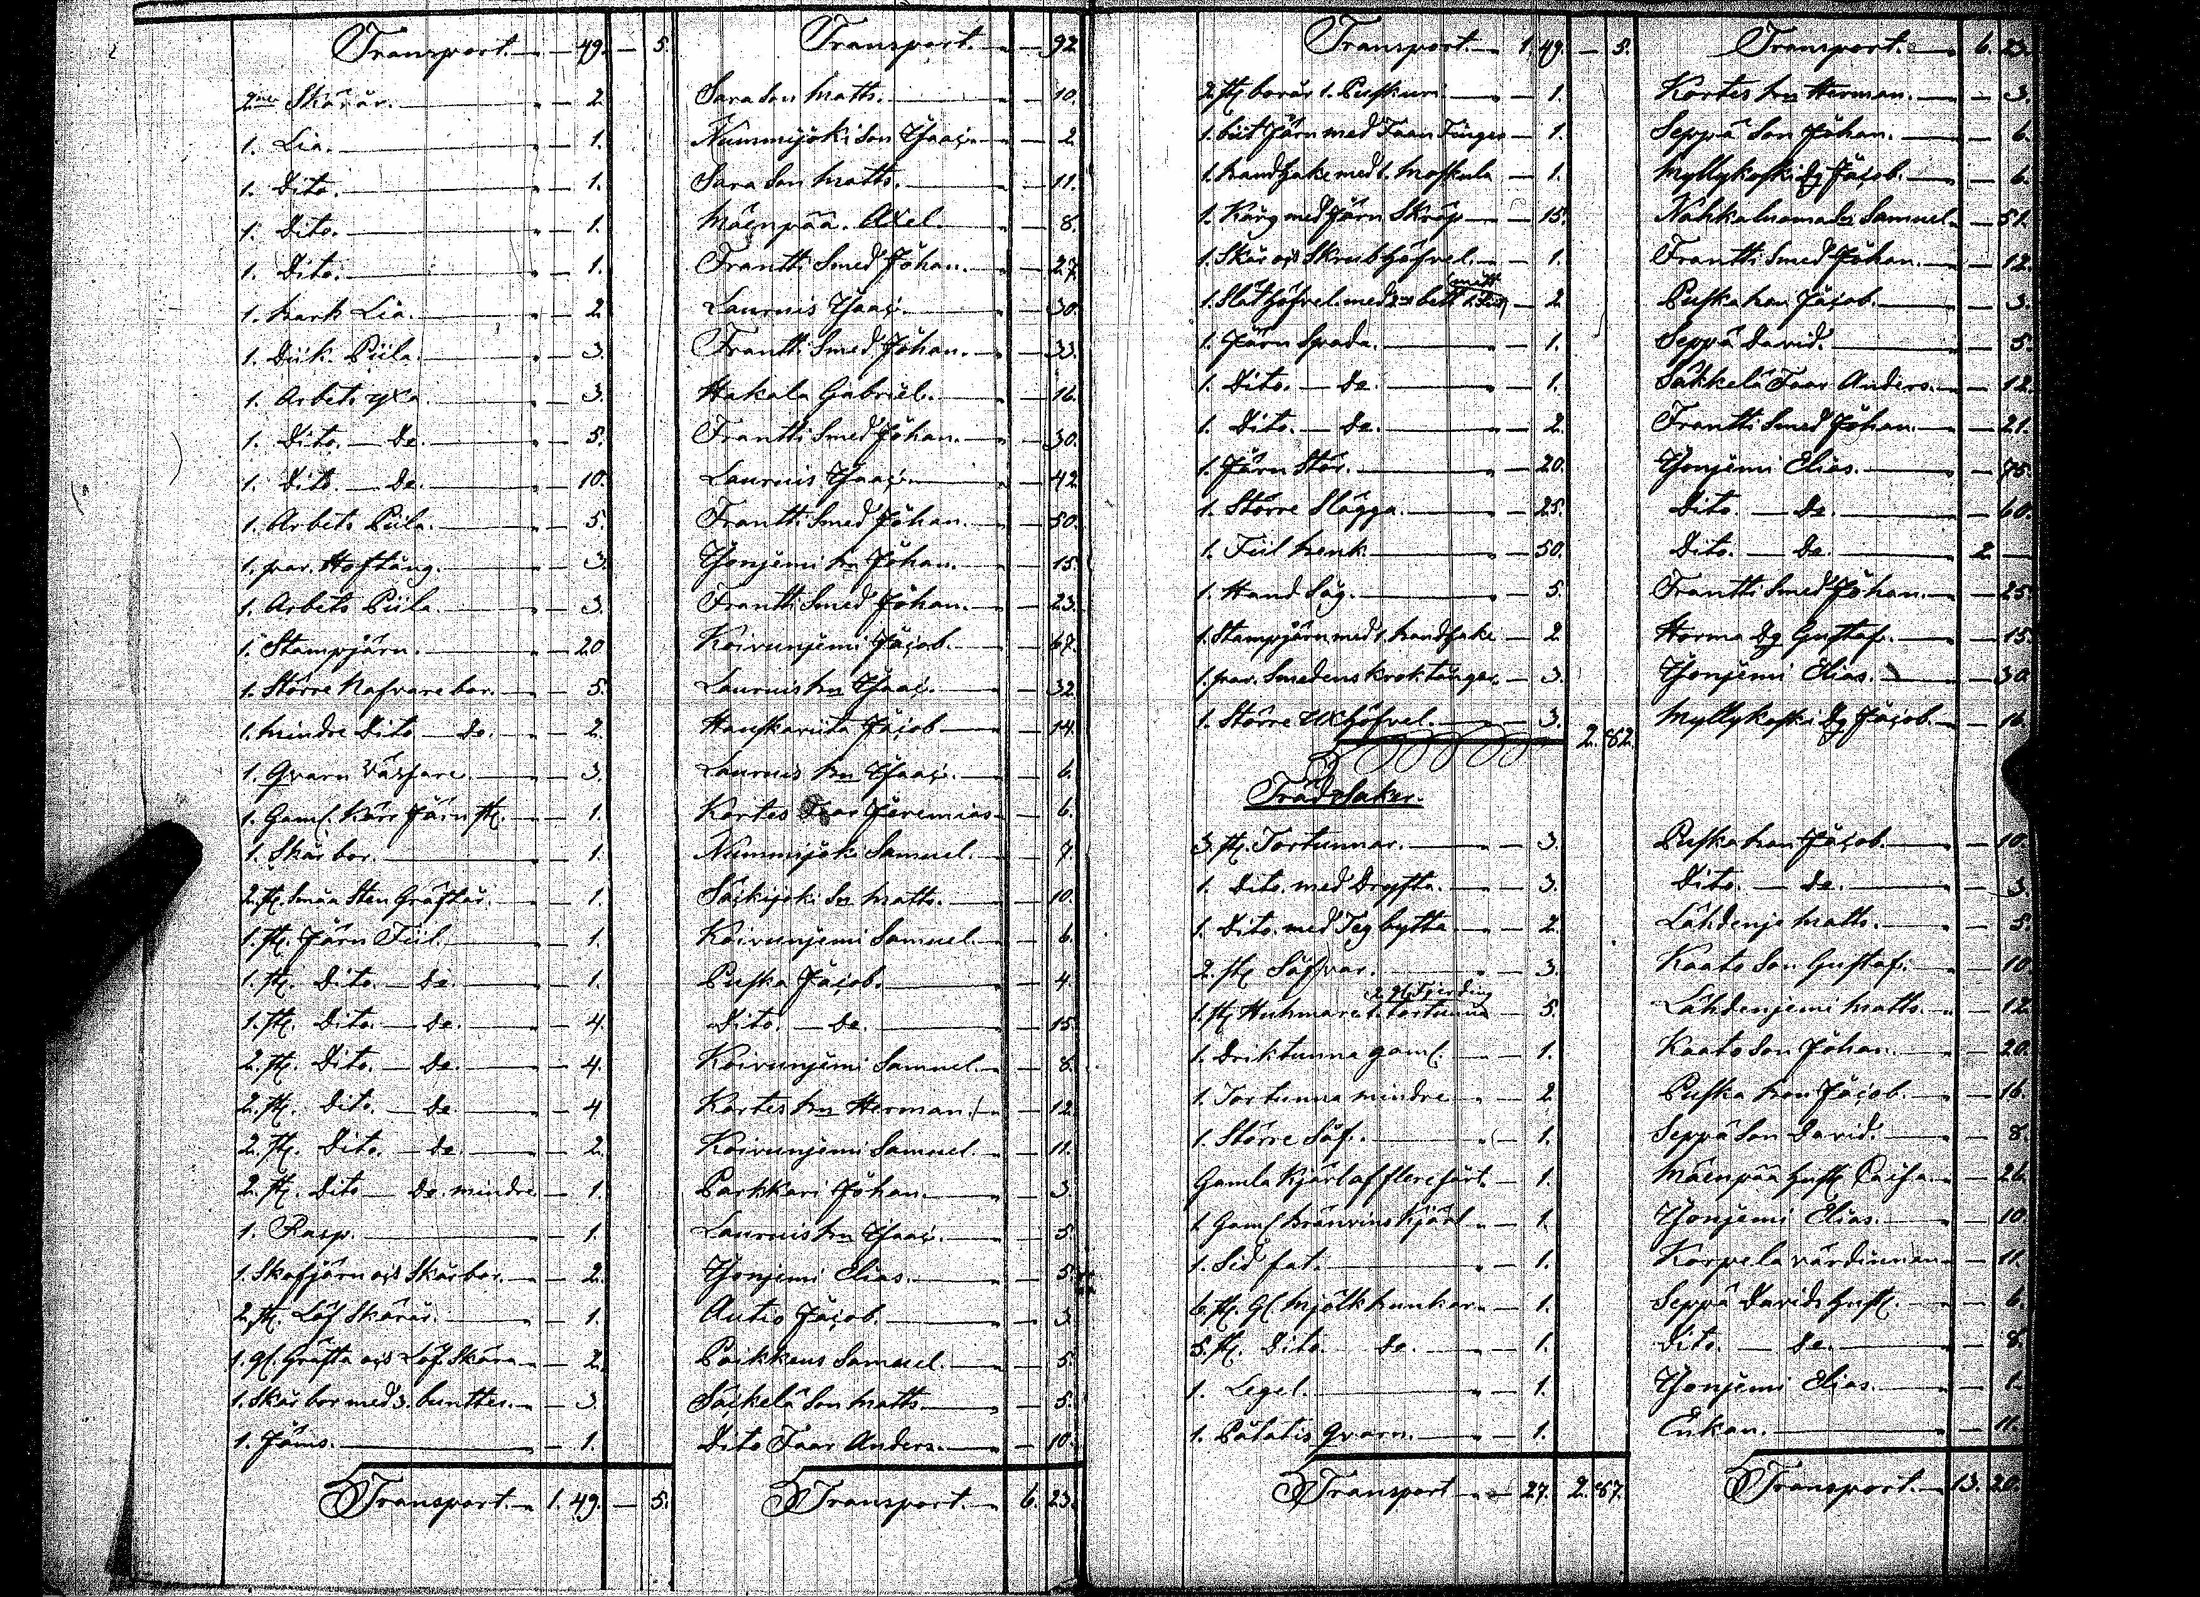 Transport. 49. 5. Transport. 92.
2ne Skärar. 2. Sara Son Matts. 10.
1. Lia. 1. Nummijoki Son Isaac. 2.
1. Dito. 1. Sara Son Matts. 11.
1. Dito. 1. Mäenpää Axel. 8.
1. Dito. 1. Frantti Smed Johan. 27.
1. hark Lia. 2. Laurus Isaac. 30.
1. Diik Piila. 3. Frantti Smed Johan. 33.
1. Arbets yxa. 3. Hakala Gabriel. 16.
1. Dito. De. 5. Frantti Smed Johan. 30.
1. Dito. De. 10. Laurus Isaac. 42.
1. Arbets Piila. 5. Frantti Smed Johan. 50.
1. par. Hoftång. 3. Johan. 15.
1. Arbets Piila. 3. Frantti Smed Johan. 23.
1. Stampjärn. 20 Koivunjemi Jacob. 67.
1. Större Nafvare bor. 5. Laurus Isaac. 32.
1. mindre Dito De. 2. Jacob 14.
1. Qvarn 3. Laurus Isaac. 6.
1. Gaml. Kärr Järn st. 1. Kortes Jeremias 6.
1. Skär bor. 1. Nummijoki Samuel. 7.
2. st. Små Sten Gräftar. 1. Säikijoki Sn Matts. 10.
1. st. Järn Fiil. 1. Koivunjemi Samuel. 6.
1. st. Dito. De. 1. Puska Jacob. 4.
1. st. Dito. De. 4. Dito. De. 15.
2. st. Dito. De. 4. Koivunjemi Samuel. 8.
2. st. Dito. De 4 Kortes Herman. 12.
2. st. Dito. De. 2. Koivunjemi Samuel. 11.
2. st. Dito De. mindre 1. Parkkari Johan. 3.
1. Rasp. 1. Laurus Isaac. 5.
1. Skafjärn och Skär bor. 2. Elias. 5.
2. st. Löf Skärar. 1. Autio Jacob. 3.
1. gl. Gräfta och Löf Skära 2. Paikkeus Samuel. 5.
1. Skär bor med 3. 3. Säikelä Son Matts 5.
1. Jäms. 1. Dito Faar Anders. 10.
Transport. 1. 49. 5. Transport. 6. 23.
Transport. 1. 49. 5. Transport. 6. 23.
2. st. borar 1. 1. Kortes Herman. 3.
1. Järn med 1. Seppä Son Johan. 6.
1. handsake med 1. 1. Myllykoski Dg Jacob. 6.
1. Korg med Järn Skräp 15. Samuel. 51.
1. Skär och Skrubhöfvel. 1. Frantti Smed Johan. 12.
1. Slät höfvel med 2ne bett 2. Puska Jacob. 3.
1. Järn Spada. 1. Seppä David. 5.
1. Dito. De. 1. Säkkelä Faar Anders. 12.
1. Dito. De. 2. Frantti Smed Johan. 21.
1. Järn Stör. 20. Elias. 75.
1. Större Slägga. 25. Dito. De. 60.
1. Fiil henk. 50. Dito. De. 2.
1. Hand Såg. 5. Frantti Smed Johan. 25.
1. Stampjärn med 1. handsake 2. Horma Dg Gustaf. 15.
1. par. Smedens krok tänger. 3. Elias. 30.
1. Större höfvel. 3. 2. 82. Myllykoski Dg Jacob. 16.
Trädsaker.
3. st. Tortunnar. 3. Puska Jacob. 10.
1. Dito. med Drysta. 3. Dito. De. 3.
1. Dito. med bytta 2. Matts. 5.
2. st. Såfvar. 3. Kaato Son Gustaf. 10.
2. gl. Fjerding
1. st. Huhmar 1. tortunna 5. Lähdenjemi Matts. 12.
1. Driktunna gaml. 1. Kaato Son Johan. 20.
1. Tortunna mindre 2. Puska Jacob. 16.
1. Större Såf. 1. Seppä Son David. 8.
Gamla Kjärl af flere sårt. 1. Mäenpää 26.
1. Gaml. bränvins kjärl 1. Elias. 10.
1. Sed fat. 1. Korpela värdinnan 11.
6. st. gl. mjölk bunkar. 1. Seppä Davids 6.
5. st. Dito. De. 1. Dito. De. 8.
1. Legel. 1. Elias 1.
1. Pätatis Qvarn. 1. Enkan. 11.
Transport 27. 2. 87. Transport. 13. 20.